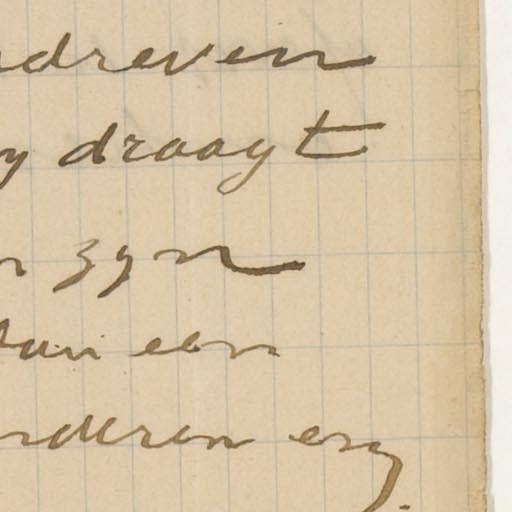 dreven
y draagt
n zyn
van een
nderen en